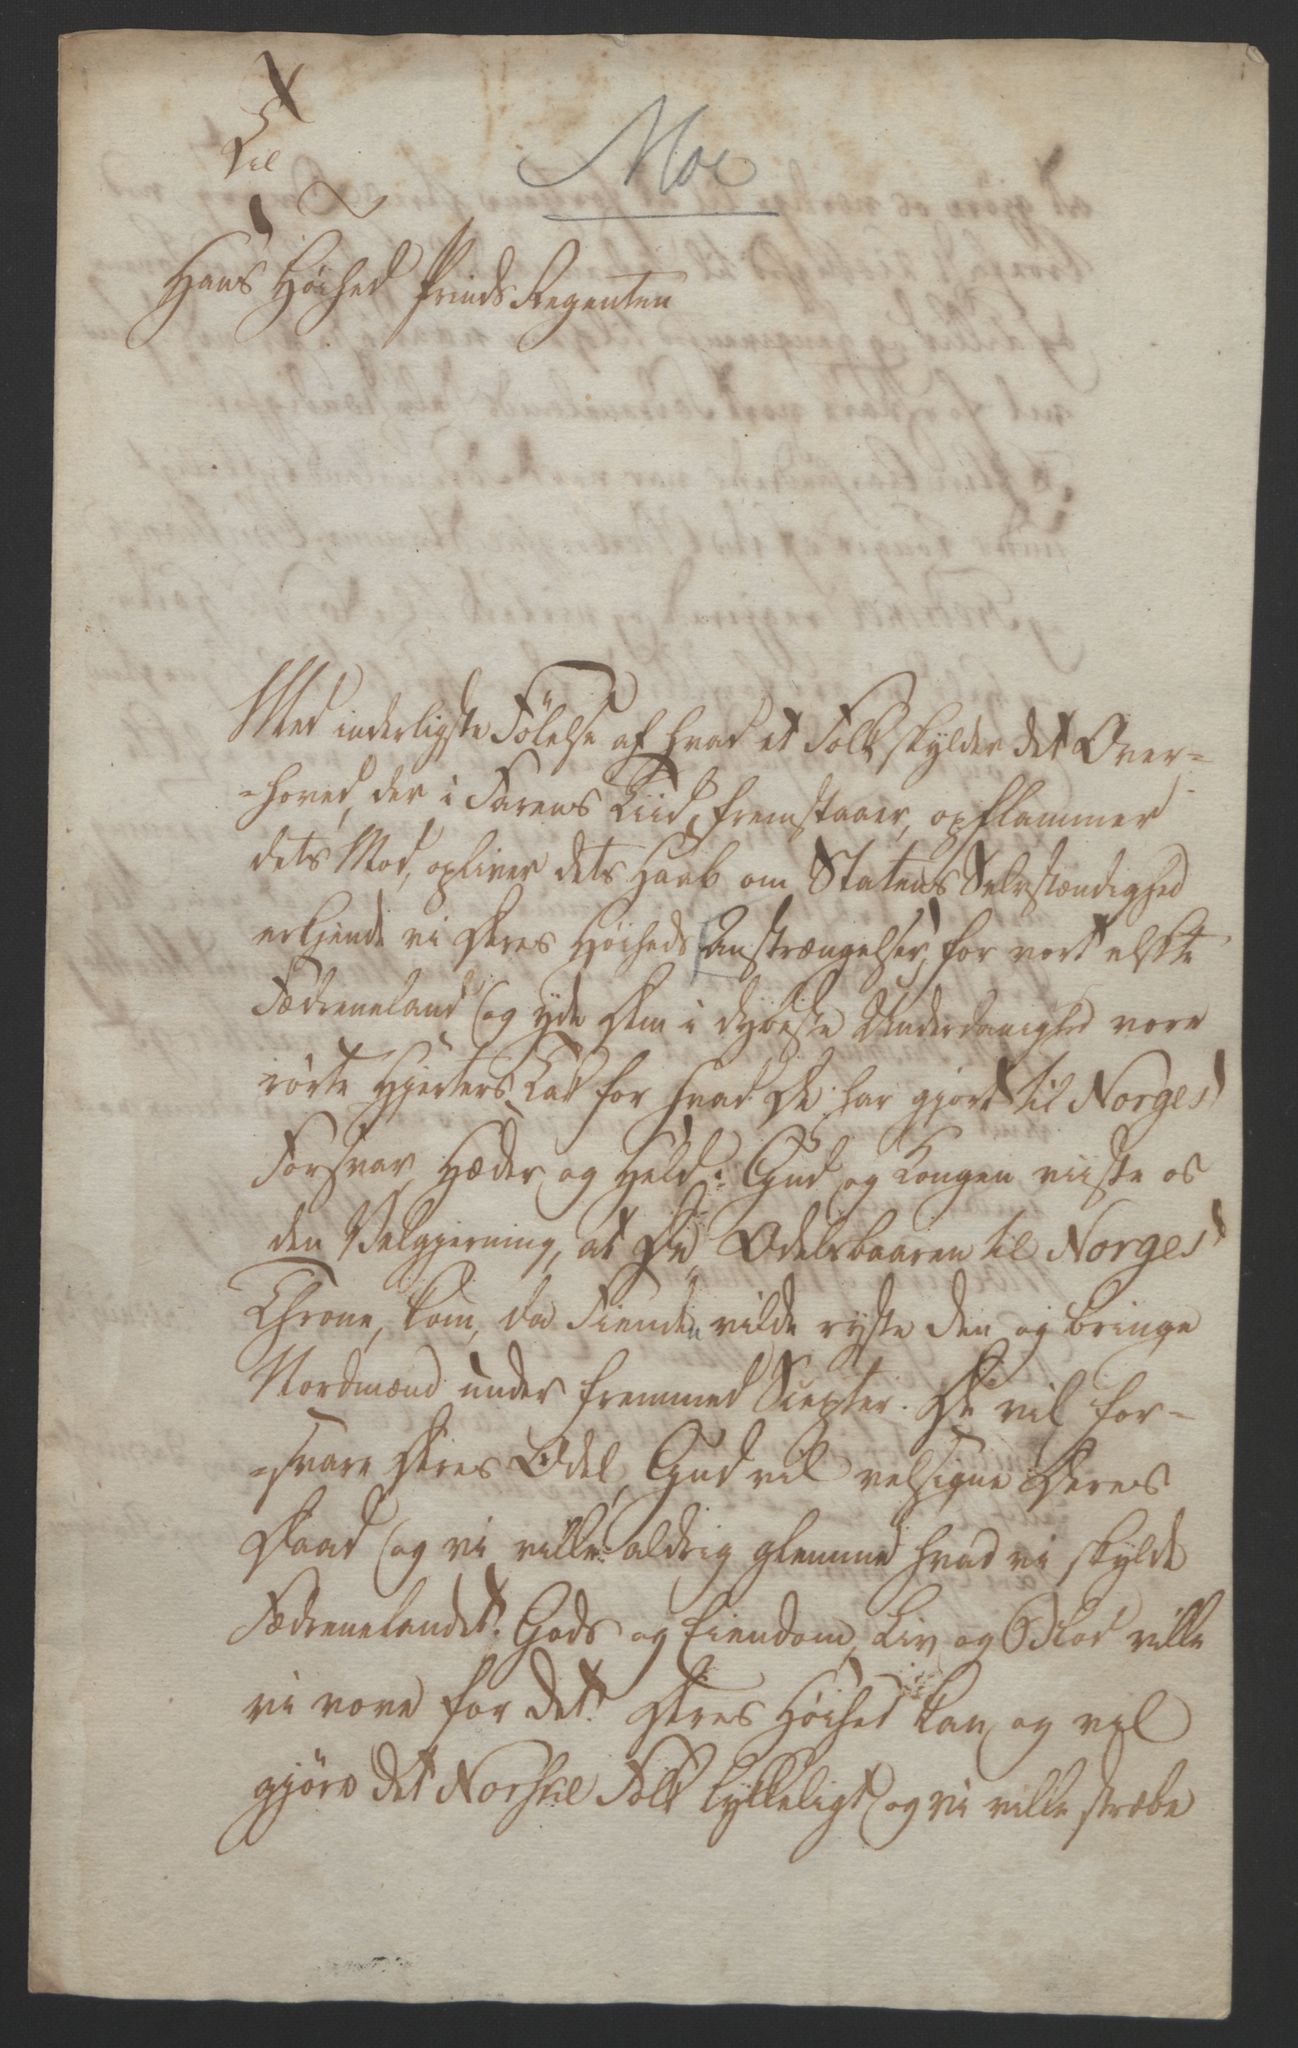 Moe
Til
Hans Høihed Prinds Regenten
Med inderligste Følelse af hvad et Folk skylder det Over-
-hoved, der i Farens Tiid, fremstaaer, opflammer
dets Mod, opliver dets Haab om Statens Selvstændighed
erkjende vi Deres Høiheds Anstrængelser, for vort elskte
Fædreneland og yde Dem i dybeste Underdanighed vore
rørte Hjerters Tak for hvad De har gjort til Norges
Forsvar, Hæder og Held. Gud og Kongen viiste os
den Velgjerning, at De, Odelsbaaren til Norges
Throne, kom, da Fienden vilde ryste den og bringe
Nordmænd under fremmed Scepter. De vil for-
-svare Deres Odel, Gud vil velsigne Deres
Daad og vi ville aldrig glemme hvad vi skylde
Fædrenelandet. Gods og Eiendom, Liv og Blod ville
vi vove for det. Deres Høihed kan og vil
gjøre det Norske Folk lykkeligt og vi ville stræbe